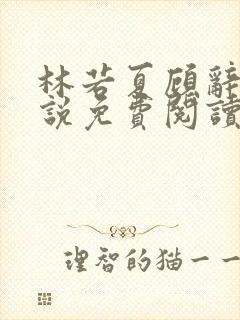 林若夏顾辞
説免費閱讀
理智的猫一一